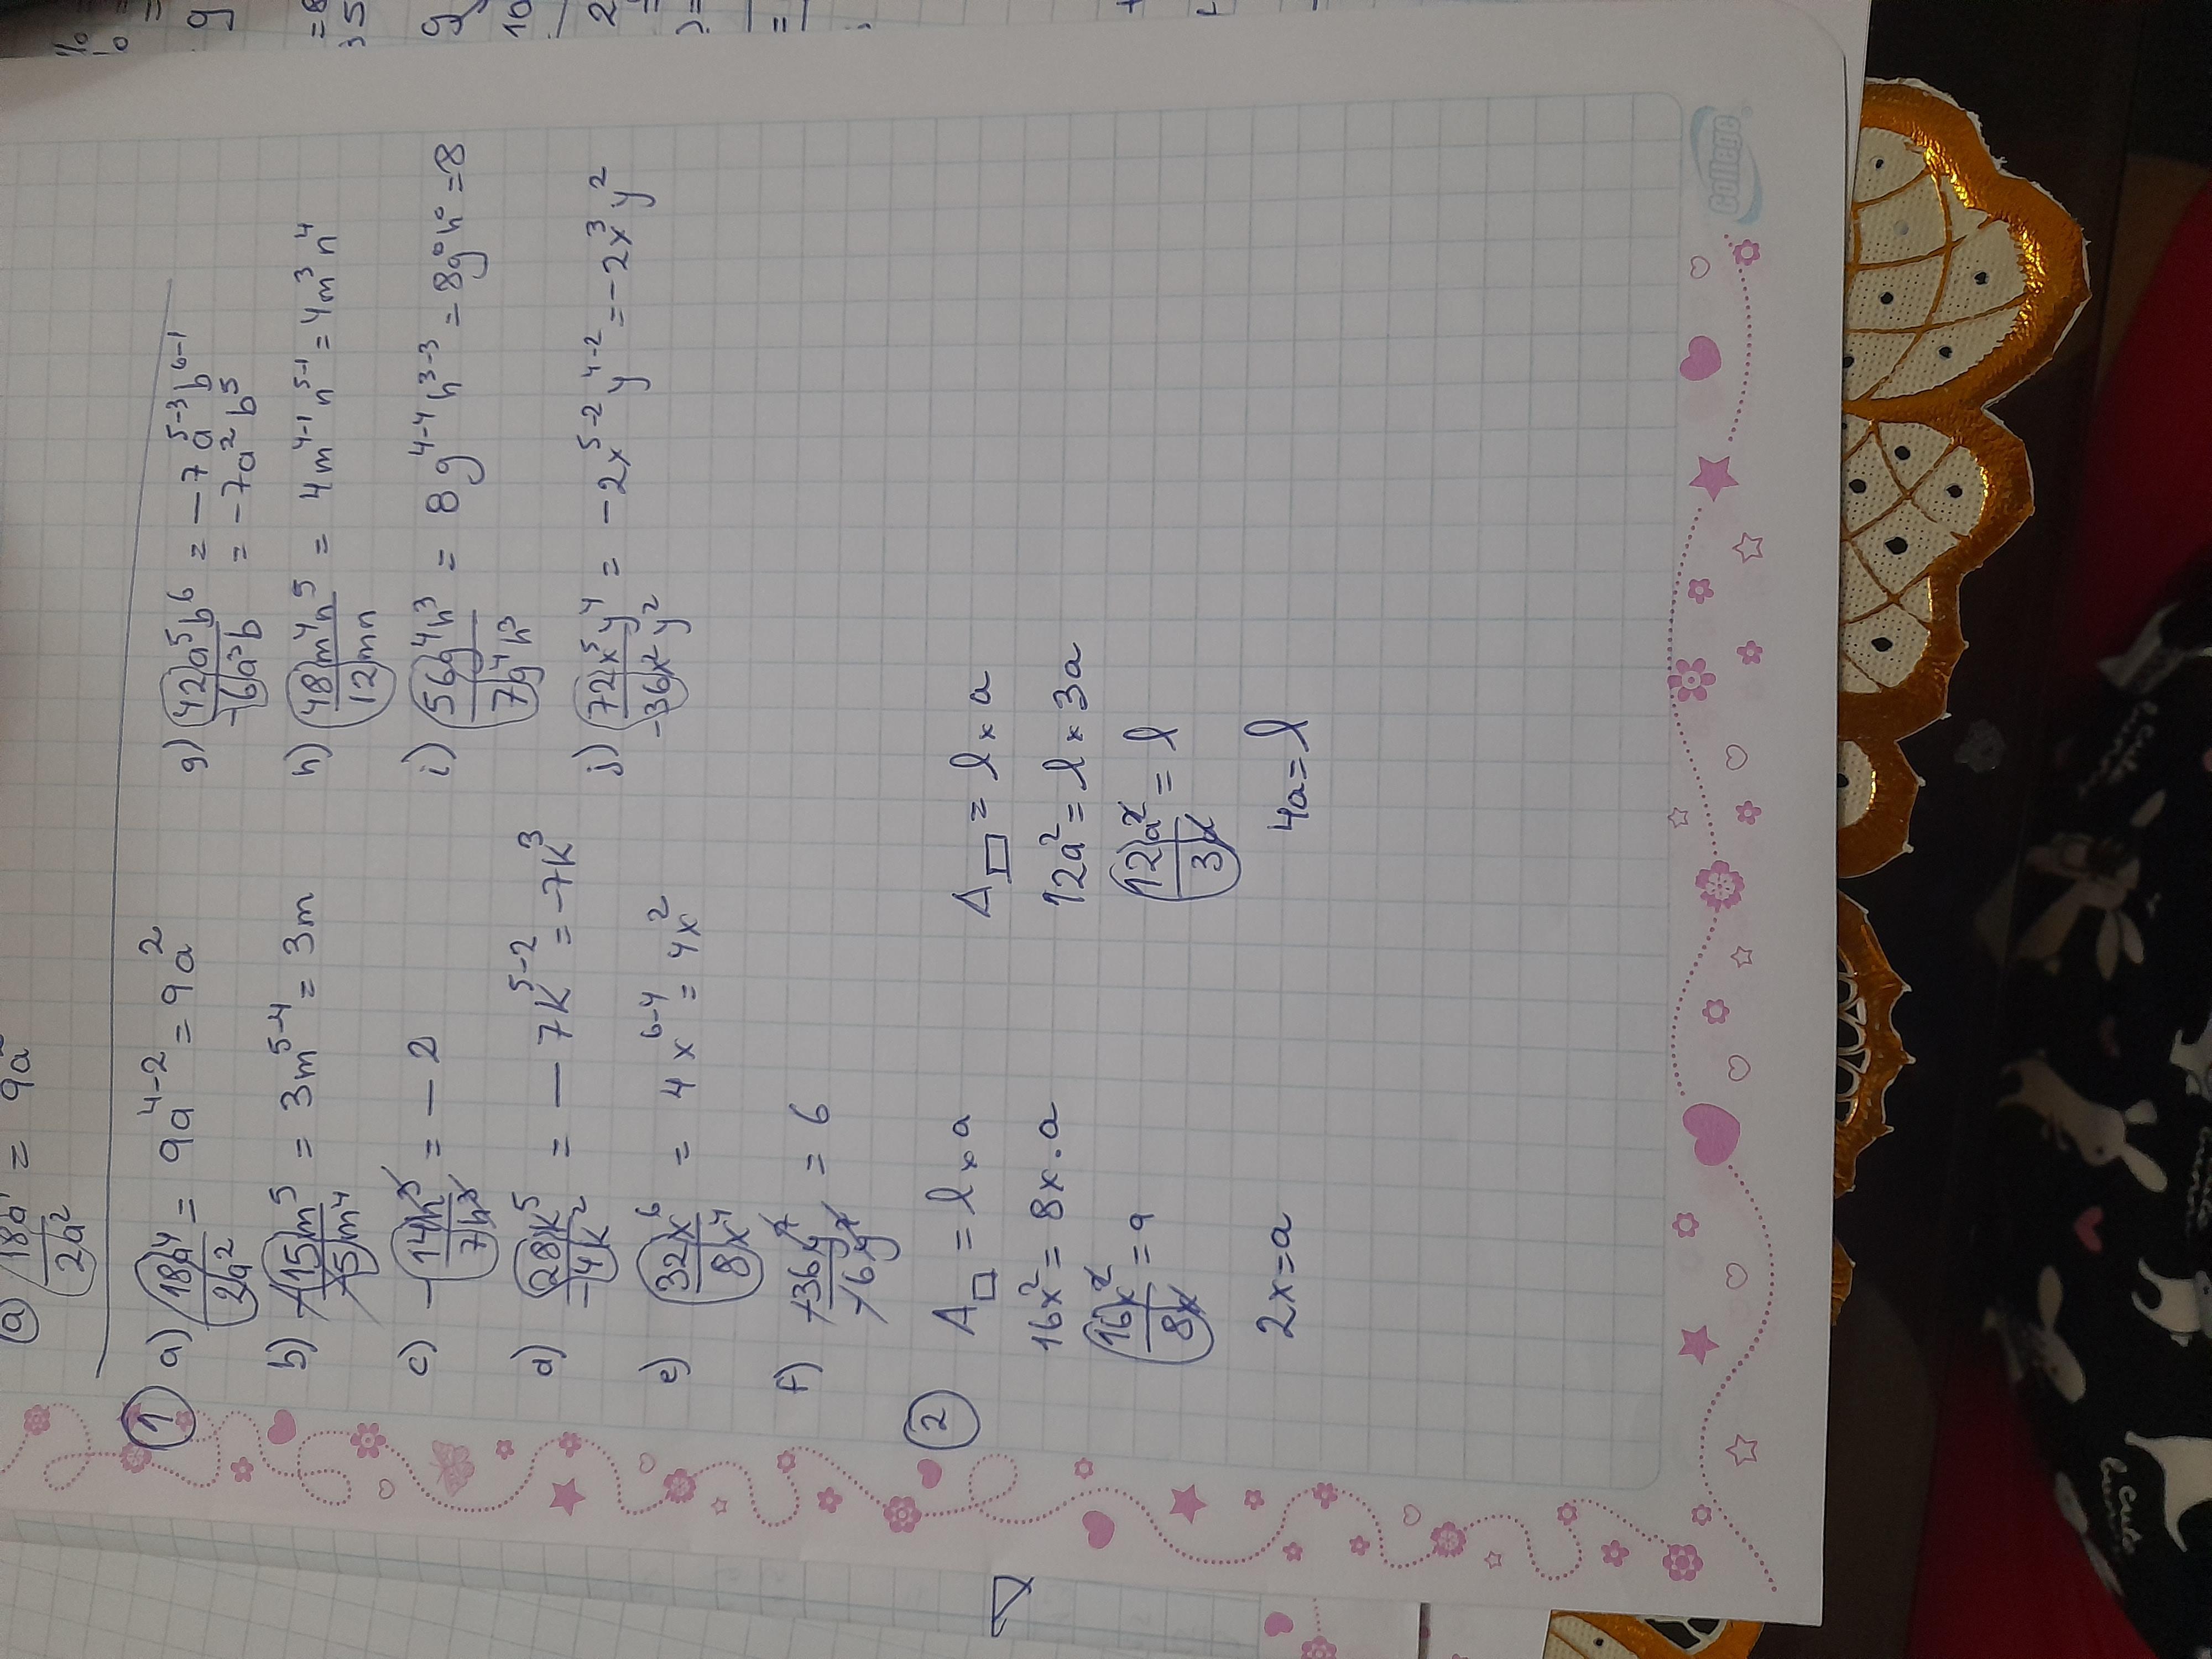 a) 18a / 2a² = 9a²
① a) 18a⁴ / 2a² = 9a⁴⁻² = 9a²
b) -15m⁵ / -5m⁴ = 3m⁵⁻⁴ = 3m
c) -14h³ / 7h³ = -2
d) 28k⁵ / -4k² = -7k⁵⁻² = -7k³
e) 32x⁶ / 8x⁴ = 4x⁶⁻⁴ = 4x²
f) -36y⁷ / -6y⁷ = 6
g) 42a⁵b⁶ / -6a³b = -7a⁵⁻³b⁶⁻¹
= -7a²b⁵
h) 48m⁴n⁵ / 12mn = 4m⁴⁻¹n⁵⁻¹ = 4m³n⁴
i) 56g⁴h³ / 7g⁴h³ = 8g⁴⁻⁴h³⁻³ = 8g⁰h⁰ = 8
j) 72x⁵y⁴ / -36x²y² = -2x⁵⁻²y⁴⁻² = -2x³y²
② A▭ = l x a
16x² = 8x · a
16x² / 8x = a
2x = a
A▭ = l x a
12a² = l x 3a
12a² / 3a = l
4a = l
College